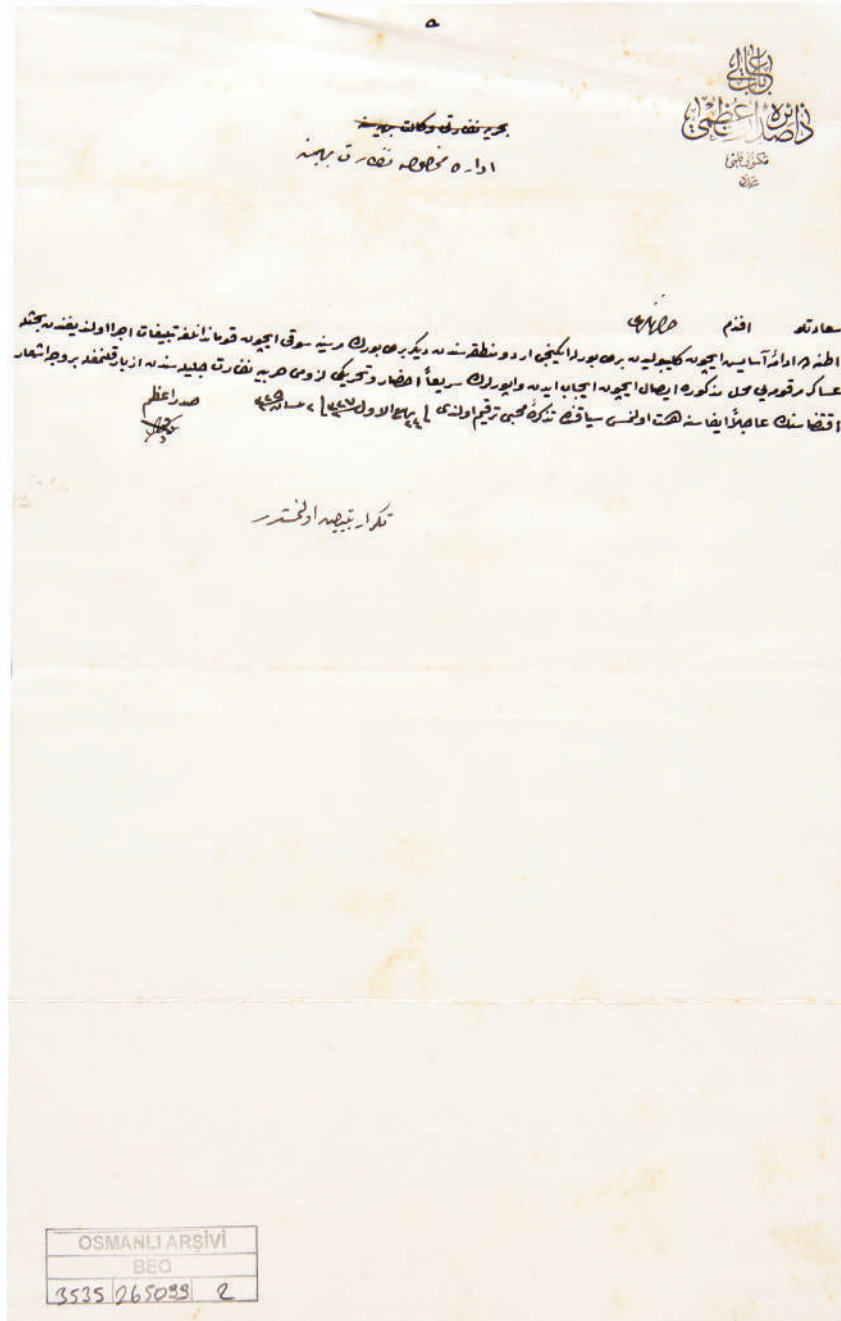 باب عالی
دائره صدارت عظمی
بحریه نظارتی وكالت بهیه‌سنه
اداره مخصوصه نظارت بهیه‌سنه
سعادتلو افندم حضرتلری
اطنه‌ده اداره آسایش ایچون كلیبولیدن بری طابور ایكنجی اردو منطقه‌سندن دیكر بری طابورك مرسینه سوقی ایچون قوماندانلغه تبلیغات اجرا اولندیغندن بحثله
عساكر مرقومه‌یی محل مذكوره ایصال ایچون ایجاب ایدن واپورلرك سریعاً احضار و تحریكی لزومی حربیه نظارت جلیله‌سندن ازبار قلنمغله بر وجه اشعار
اقتضاسنك عاجلاً ایفاسنه همت اولنمسی سیاقنده تذكره محبی ترقیم اولندی ٢٤ ربیع الاول ٣٢٧ ٢ نیسان ٣٢٥
صدر اعظم
تكرار تبییض اولنمشدر
OSMANLI ARŞİVİ
BEO
3535 265099 2